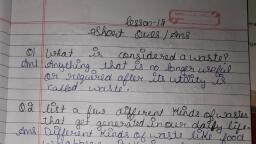 Lesson-18
Short Ques/Ans
Q1 What is considered a waste?
Ans Anything that is no longer useful
or required after its utility is
called waste.
Q2 List a few different kinds of wastes
that get generated in our daily life.
Ans Different kinds of waste like food